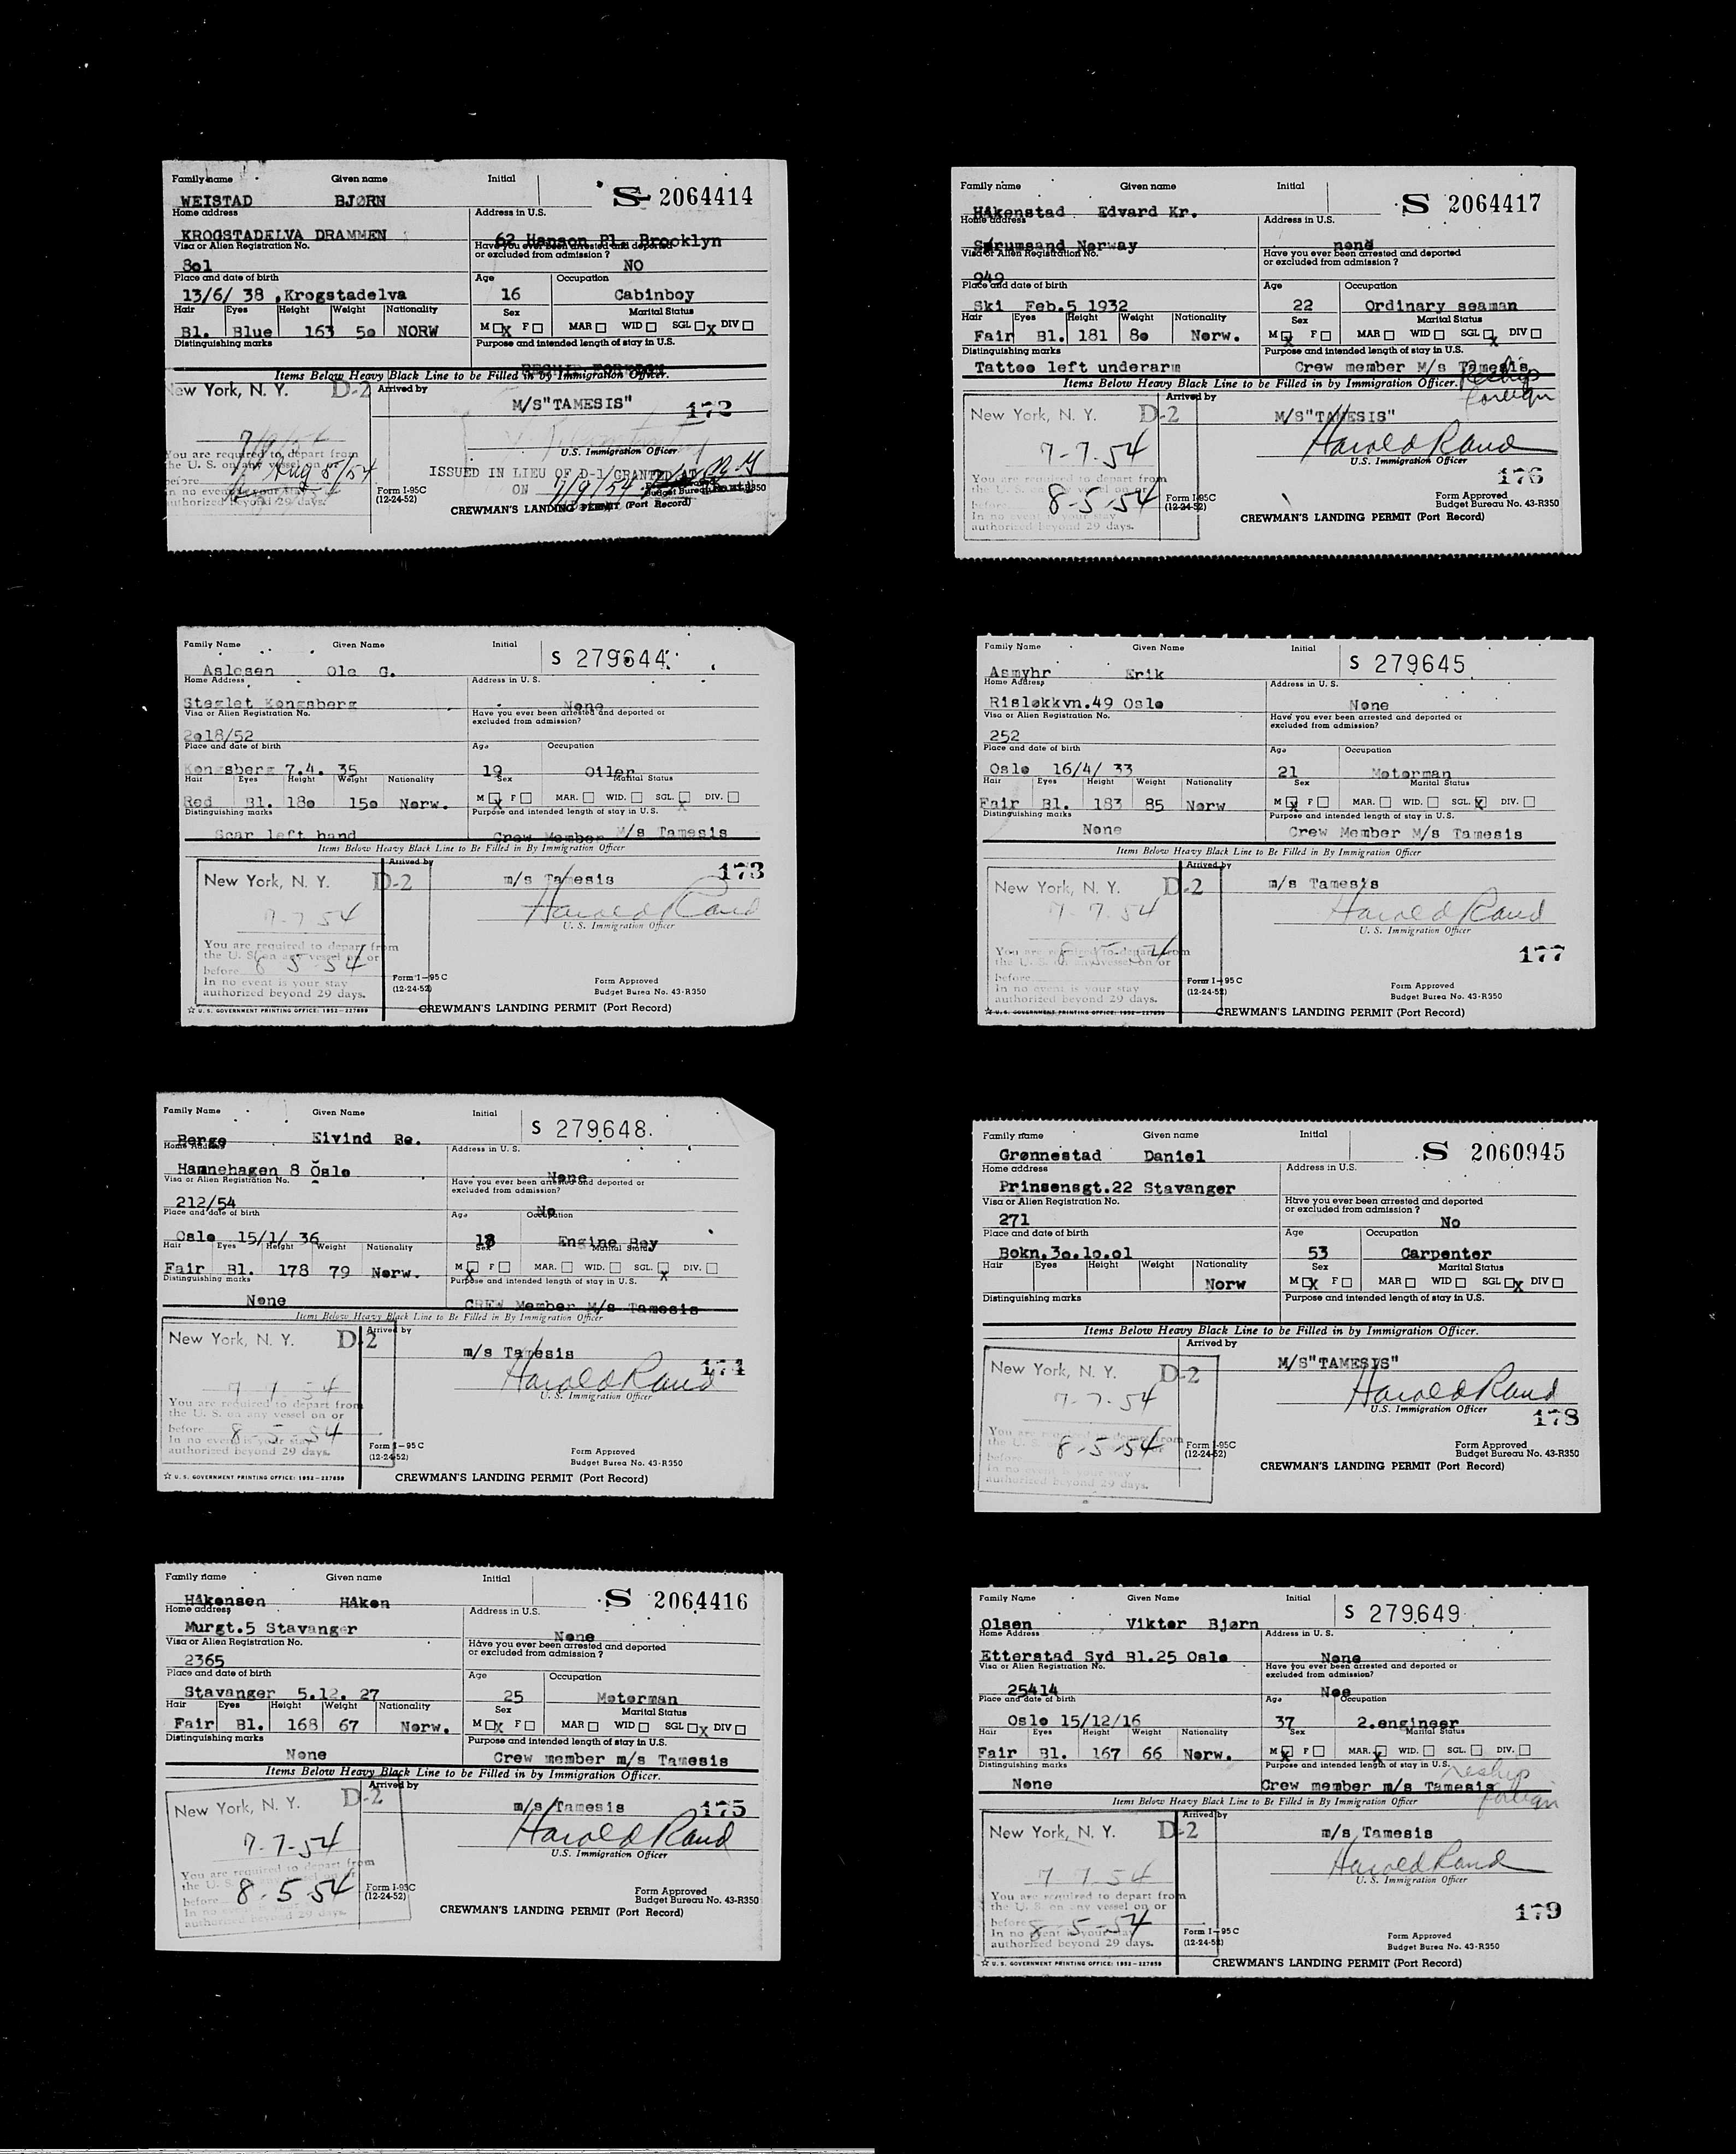 Family name Given name Initial
S 2064414
WEISTAD BJØRN
Home address Address in U.S.
KROGSTADELVA DRAMMEN 62 Hanson Pl. Brooklyn
Visa or Alien Registration No. Have you ever been arrested and deported or excluded from admission ?
801 NO
Place and date of birth Age Occupation
13/6/ 38 ,Krogstadelva 16 Cabinboy
Hair Eyes Height Weight Nationality Sex Marital Status
Bl. Blue 163 50 NORW M X F MAR WID SGL X DIV
Distinguishing marks Purpose and intended length of stay in U.S.
RESHIP FOREIGN
Items Below Heavy Black Line to be Filled in by Immigration Officer.
New York, N. Y. D-2 Arrived by
M/S"TAMESIS" 172
U.S. Immigration Officer
You are required to depart from
the U. S. on any vessel on or
before Aug 5/54
In no event is your stay
authorized beyond 29 days.
ISSUED IN LIEU OF D-1/GRANTED AT
ON 7/9/54
Form I-95C
(12-24-52)
CREWMAN'S LANDING PERMIT (Port Record)
Family name Given name Initial
S 2064417
Håkenstad Edvard Kr.
Home address Address in U.S.
Sørumsand Norway none
Visa or Alien Registration No. Have you ever been arrested and deported or excluded from admission ?
949
Place and date of birth Age Occupation
Ski Feb.5 1932 22 Ordinary seaman
Hair Eyes Height Weight Nationality Sex Marital Status
Fair Bl. 181 80 Norw. M X F MAR WID SGL X DIV
Distinguishing marks Purpose and intended length of stay in U.S.
Tattoo left underarm Crew member M/s Tamesis
Reship foreign
Items Below Heavy Black Line to be Filled in by Immigration Officer.
New York, N. Y. D-2 Arrived by
M/S"TAMESIS"
7-7-54 Harold Rand
U.S. Immigration Officer
176
You are required to depart from
the U. S. on any vessel on or
before 8-5-54
In no event is your stay
authorized beyond 29 days.
Form I-95C
(12-24-52)
Form Approved
Budget Bureau No. 43-R350
CREWMAN'S LANDING PERMIT (Port Record)
Family Name Given Name Initial
S 279644
Aslesen Ole G.
Home Address Address in U. S.
Steglet Kongsberg None
Visa or Alien Registration No. Have you ever been arrested and deported or excluded from admission?
2018/52
Place and date of birth Age Occupation
Kongsberg 7.4. 35 19 Oiler
Hair Eyes Height Weight Nationality Sex Marital Status
Red Bl. 180 150 Norw. M X F MAR. WID. SGL. X DIV.
Distinguishing marks Purpose and intended length of stay in U. S.
Scar left hand Crew Member M/s Tamesis
Items Below Heavy Black Line to Be Filled in By Immigration Officer
New York, N. Y. D-2 Arrived by
m/s Tamesis 173
7-7-54 Harold Rand
U. S. Immigration Officer
You are required to depart from
the U. S. on any vessel on or
before 8 5 54
In no event is your stay
authorized beyond 29 days.
Form I-95 C
(12-24-52)
Form Approved
Budget Burea No. 43-R350
☆ U. S. GOVERNMENT PRINTING OFFICE: 1952—227859
CREWMAN'S LANDING PERMIT (Port Record)
Family Name Given Name Initial
S 279645
Asmyhr Erik
Home Address Address in U. S.
Risløkkvn.49 Oslo None
Visa or Alien Registration No. Have you ever been arrested and deported or excluded from admission?
252
Place and date of birth Age Occupation
Oslo 16/4/ 33 21 Motorman
Hair Eyes Height Weight Nationality Sex Marital Status
Fair Bl. 183 85 Norw M X F MAR. WID. SGL. X DIV.
Distinguishing marks Purpose and intended length of stay in U. S.
None Crew Member M/s Tamesis
Items Below Heavy Black Line to Be Filled in By Immigration Officer
New York, N. Y. D-2 Arrived by
m/s Tamesis
7-7-54 Harold Rand
U. S. Immigration Officer
177
You are required to depart from
the U. S. on any vessel on or
before 8-5-54
In no event is your stay
authorized beyond 29 days.
Form I-95 C
(12-24-52)
Form Approved
Budget Burea No. 43-R350
☆ U. S. GOVERNMENT PRINTING OFFICE: 1952—227859
CREWMAN'S LANDING PERMIT (Port Record)
Family Name Given Name Initial
S 279648
Berge Eivind Be.
Home Address Address in U. S.
Hamnehagen 8 Oslo None
Visa or Alien Registration No. Have you ever been arrested and deported or excluded from admission?
212/54 No
Place and date of birth Age Occupation
Oslo 15/1/ 36 18 Engine Boy
Hair Eyes Height Weight Nationality Sex Marital Status
Fair Bl. 178 79 Norw. M X F MAR. WID. SGL. X DIV.
Distinguishing marks Purpose and intended length of stay in U. S.
None CREW Member M/s Tamesis
Items Below Heavy Black Line to Be Filled in By Immigration Officer
New York, N. Y. D-2 Arrived by
m/s Tamesis 174
7-7-54 Harold Rand
U. S. Immigration Officer
You are required to depart from
the U. S. on any vessel on or
before 8-5-54
In no event is your stay
authorized beyond 29 days.
Form I-95 C
(12-24-52)
Form Approved
Budget Burea No. 43-R350
☆ U. S. GOVERNMENT PRINTING OFFICE: 1952—227859
CREWMAN'S LANDING PERMIT (Port Record)
Family name Given name Initial
S 2060945
Grønnestad Daniel
Home address Address in U.S.
Prinsensgt.22 Stavanger
Visa or Alien Registration No. Have you ever been arrested and deported or excluded from admission ?
271 No
Place and date of birth Age Occupation
Bokn.30.10.01 53 Carpenter
Hair Eyes Height Weight Nationality Sex Marital Status
Norw M X F MAR WID SGL X DIV
Distinguishing marks Purpose and intended length of stay in U.S.
Items Below Heavy Black Line to be Filled in by Immigration Officer.
New York, N. Y. D-2 Arrived by
M/S"TAMESIS"
7-7-54 Harold Rand
U.S. Immigration Officer
178
You are required to depart from
the U. S. on any vessel on or
before 8-5-54
In no event is your stay
authorized beyond 29 days.
Form I-95C
(12-24-52)
Form Approved
Budget Bureau No. 43-R350
CREWMAN'S LANDING PERMIT (Port Record)
Family name Given name Initial
S 2064416
Håkensen Håken
Home address Address in U.S.
Murgt.5 Stavanger None
Visa or Alien Registration No. Have you ever been arrested and deported or excluded from admission ?
2365
Place and date of birth Age Occupation
Stavanger 5.12. 27 25 Motorman
Hair Eyes Height Weight Nationality Sex Marital Status
Fair Bl. 168 67 Norw. M X F MAR WID SGL X DIV
Distinguishing marks Purpose and intended length of stay in U.S.
None Crew member m/s Tamesis
Items Below Heavy Black Line to be Filled in by Immigration Officer.
New York, N. Y. D-2 Arrived by
m/s Tamesis 175
7-7-54 Harold Rand
U.S. Immigration Officer
You are required to depart from
the U. S. on any vessel on or
before 8-5 54
In no event is your stay
authorized beyond 29 days.
Form I-95C
(12-24-52)
Form Approved
Budget Bureau No. 43-R350
CREWMAN'S LANDING PERMIT (Port Record)
Family Name Given Name Initial
S 279649
Olsen Viktor Bjørn
Home Address Address in U. S.
Etterstad Syd Bl.25 Oslo None
Visa or Alien Registration No. Have you ever been arrested and deported or excluded from admission?
25414 Noe
Place and date of birth Age Occupation
Oslo 15/12/16 37 2.engineer
Hair Eyes Height Weight Nationality Sex Marital Status
Fair Bl. 167 66 Norw. M X F MAR. X WID. SGL. DIV.
Distinguishing marks Purpose and intended length of stay in U.S.
None Crew member m/s Tamesis
reship foreign
Items Below Heavy Black Line to Be Filled in By Immigration Officer
New York, N. Y. D-2 Arrived by
m/s Tamesis
7 7 54 Harold Rand
U. S. Immigration Officer
179
You are required to depart from
the U. S. on any vessel on or
before 8-5-54
In no event is your stay
authorized beyond 29 days.
Form I-95 C
(12-24-52)
Form Approved
Budget Burea No. 43-R350
☆ U. S. GOVERNMENT PRINTING OFFICE: 1952—227859
CREWMAN'S LANDING PERMIT (Port Record)